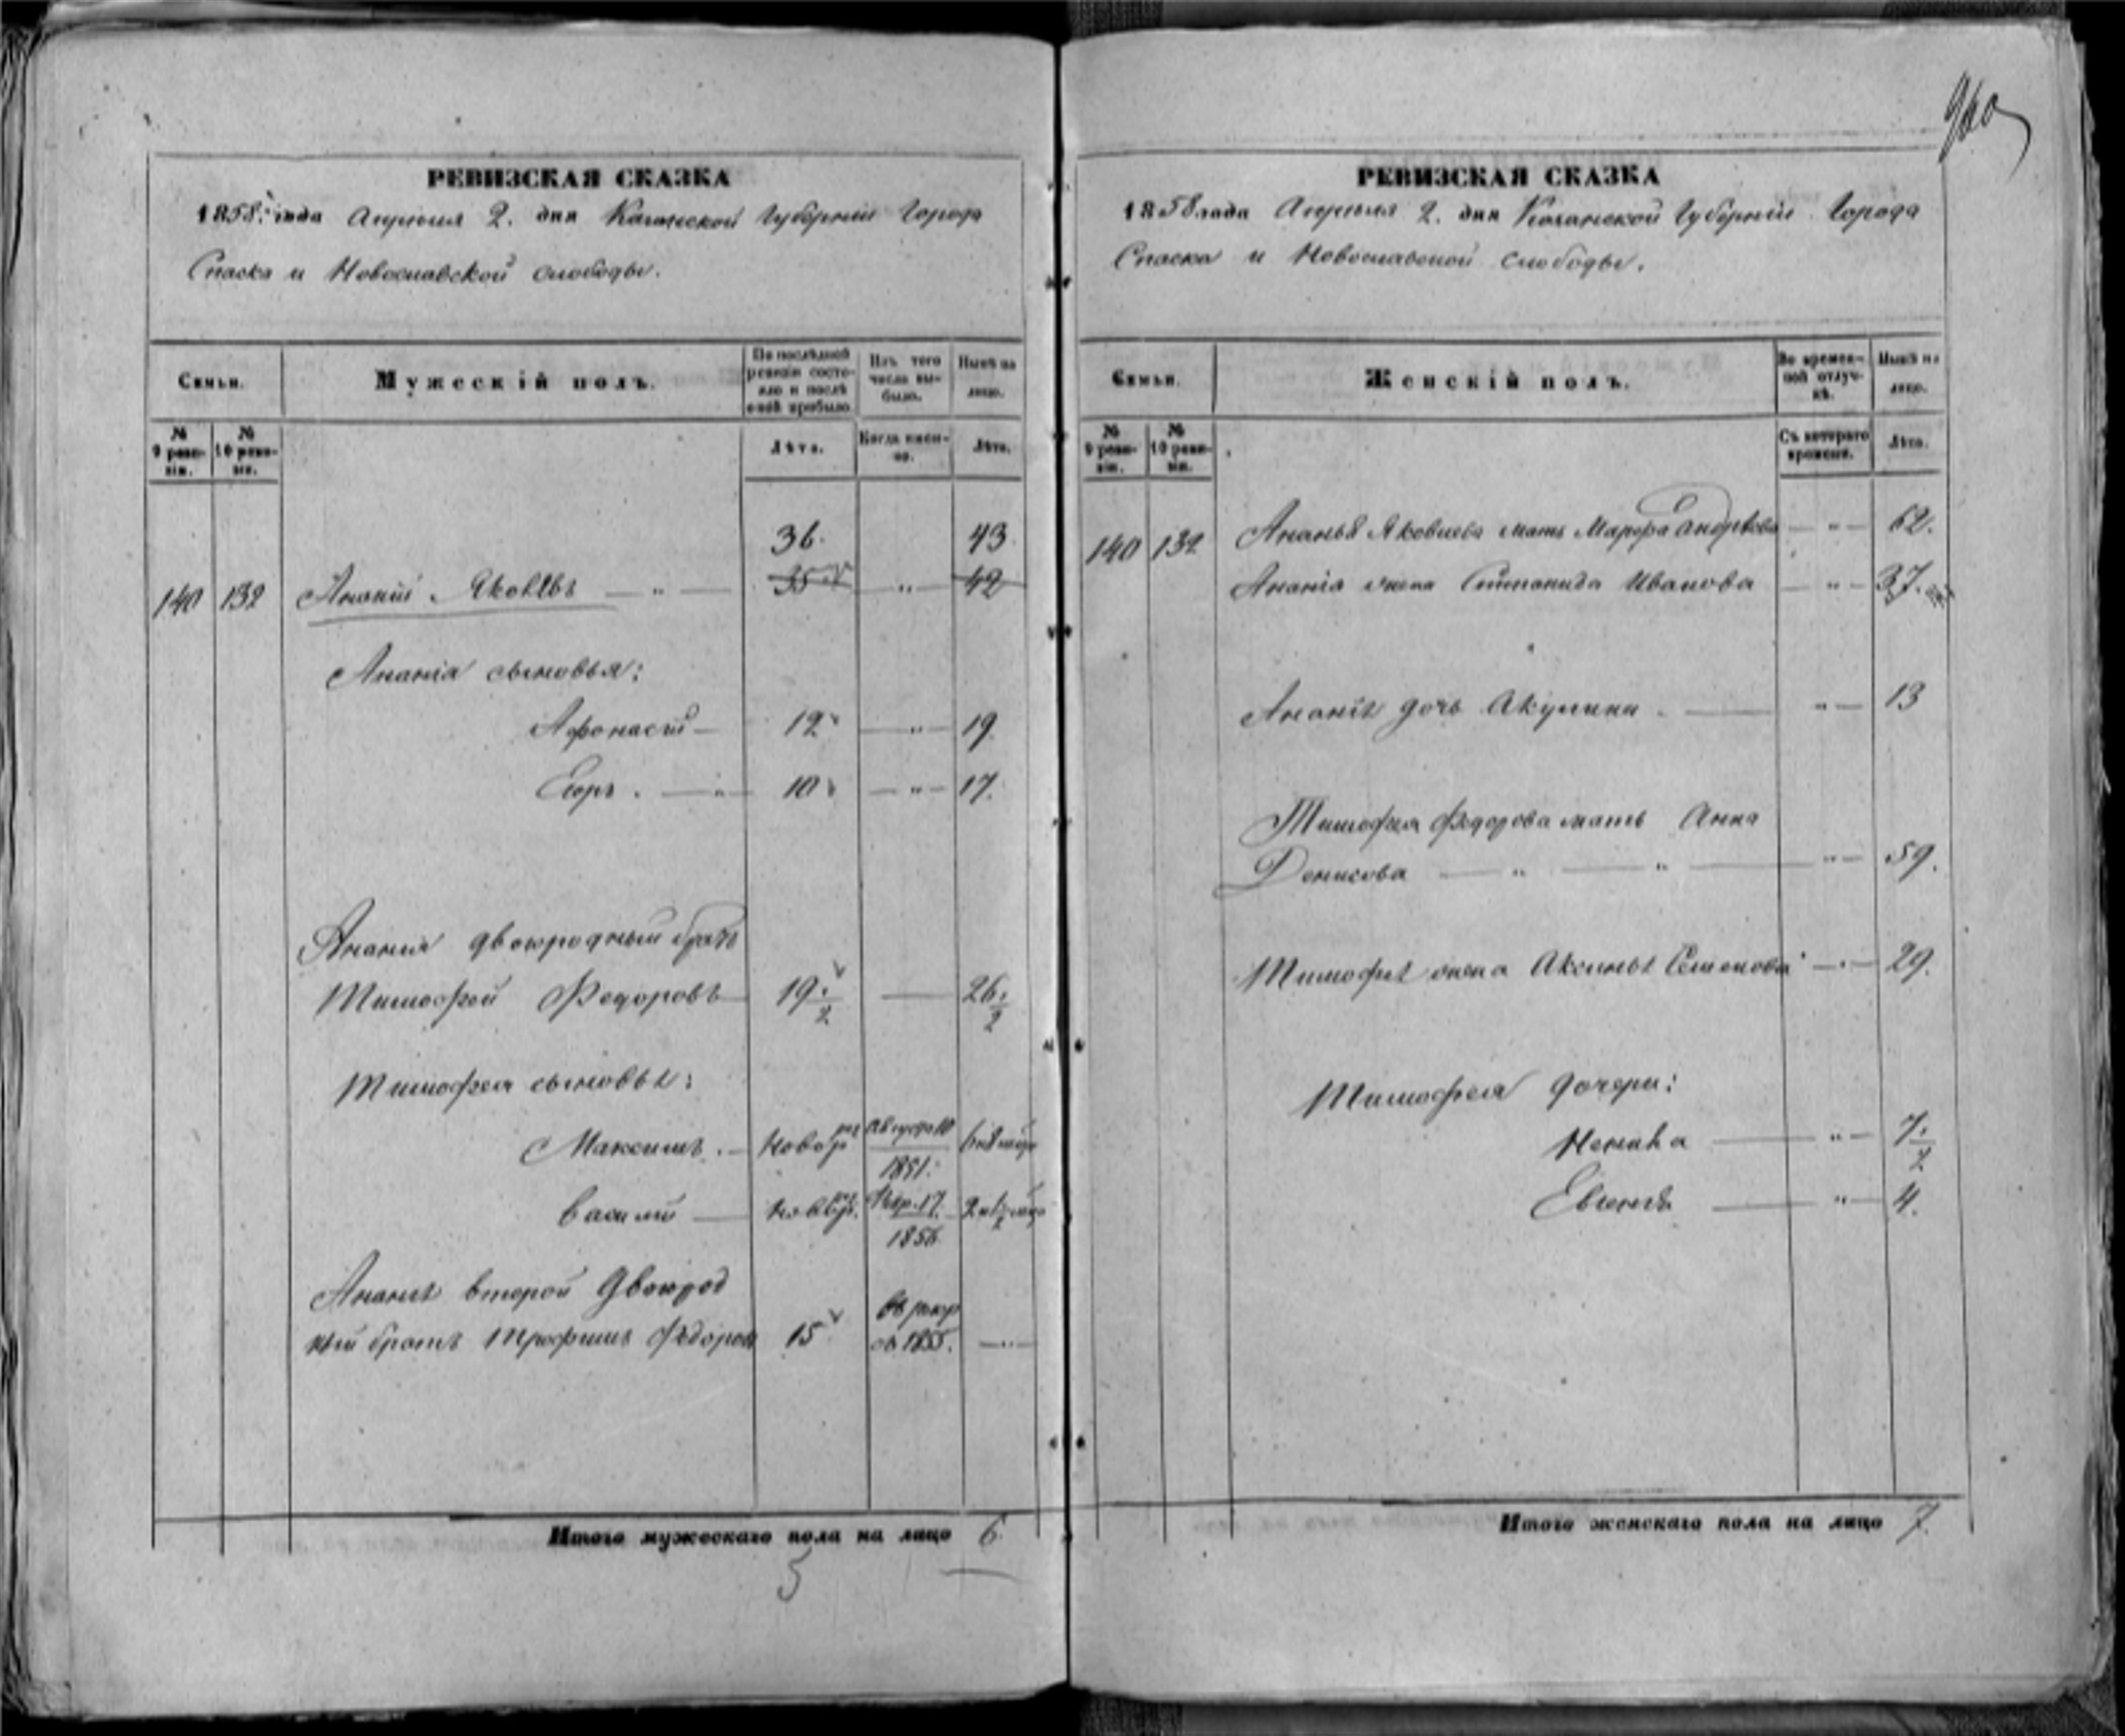 960
РЕВИЗСКАЯ СКАЗКА
1858. года Апреля 2. дня Казанской Губернии Города
Спаска и Новоспавской слободы.
Семьи.
Мужескій полъ.
По послѣдней ревизіи состояло и послѣ оной прибыло.
Изъ того числа выбыло.
Нынѣ на лицо.
№ 9 ревизіи.
№ 10 ревизіи.
Лѣта.
Когда именно.
Лѣта.
36. 43
140 132 Ананій Яковлевъ — " — 35 " 42
Ананія сыновья:
Афонасій — 12 — " — 19
Егоръ . — " — 10 — " — 17.
Анания двоюродный братъ
Тимофей Федоровъ — 19 1/2 — 26 1/2
Тимофея сыновья:
Максимъ . — новорож Августа 10 1851. 6 и 8 мцъ
Василий — новорож. 1856
Ананія второй двоюрод
ный братъ Трофимъ Федоровъ 15 въ рекр въ 1855. — " —
Итого мужескаго пола на лицо 6.
5
РЕВИЗСКАЯ СКАЗКА
1858 года Апреля 2. дня Казанской Губерніи Города
Спаска и Новоспавской слободы.
Семьи.
Женскій полъ.
Во временной отлучкѣ.
Нынѣ на лицо.
№ 9 ревизіи.
№ 10 ревизіи.
Съ котораго времени.
Лѣта.
140 132 Ананья Яковлева мать Марфа — " — 62.
Ананія жена Степанида Иванова — " — 37.
Ананія дочь Акулина . — " — 13
Тимофея Федорова мать Анна
Денисова — " — " — " — 59.
Тимофея жена Аксинья Семенова — " — 29.
Тимофея дочери:
— " — 7. 1/2
Евгенія — " — 4.
Итого женскаго пола на лицо 7.